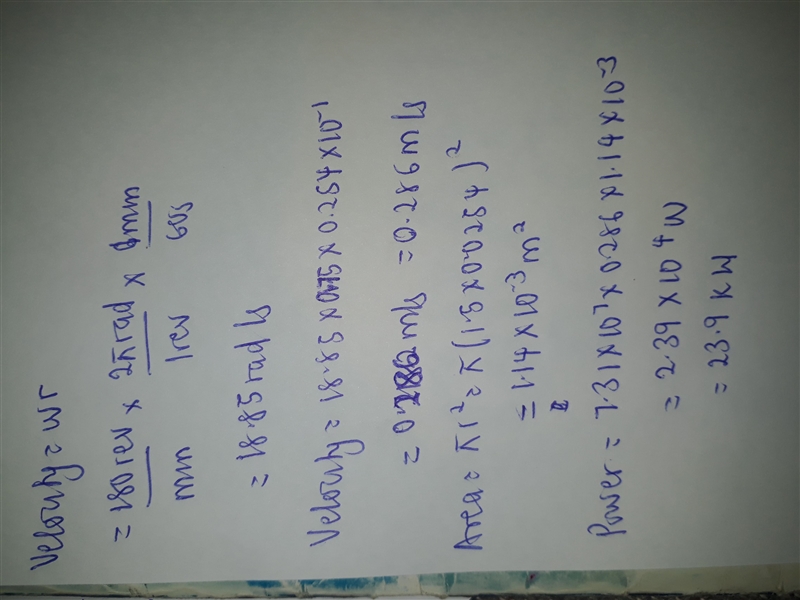 Velocity = wr
= 180 rev/min × 2π rad/1 rev × 1 min/60s
= 18.85 rad/s
Velocity = 18.85 × 0.254 × 10⁻¹
= 0. m/s = 0.286 m/s
Area = πr² = π(1.5 × 0.0254)²
= 1.14 × 10⁻³ m²
Power = 7.31 × 10⁷ × 0.286 × 1.14 × 10⁻³
= 2.39 × 10⁴ W
= 23.9 KW